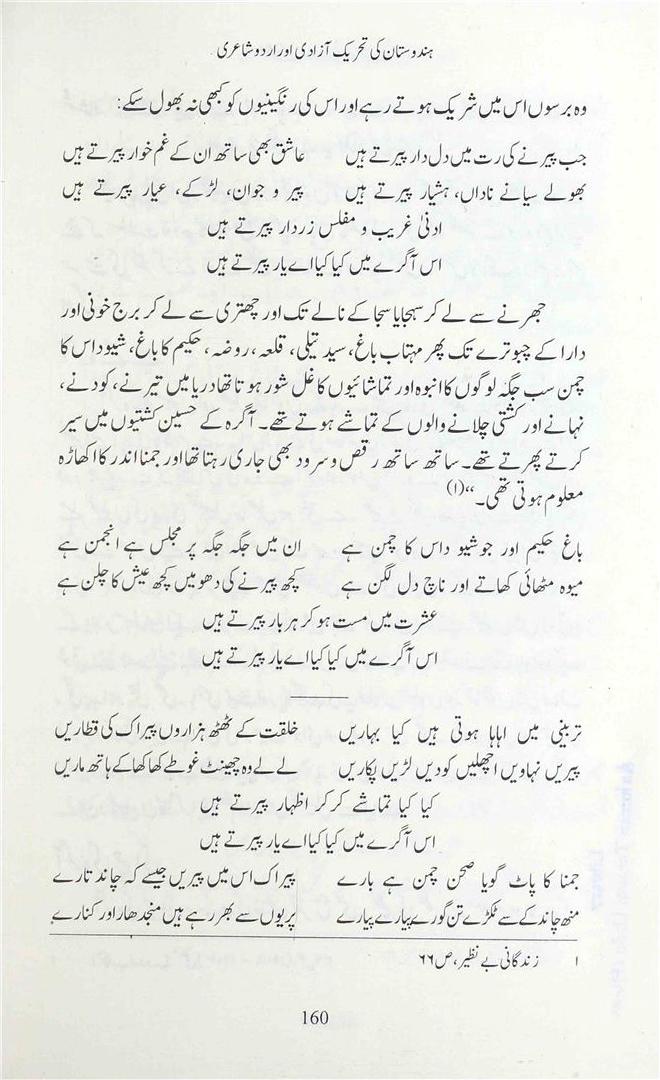 ہندوستان کی تحریک آزادی اور اردو شاعری
وہ برسوں اس میں شریک ہوتے رہے اور اس کی رنگینیوں کو کبھی نہ بھول سکے:
جب پیرنے کی رت میں دل دار پیرتے ہیں عاشق بھی ساتھ ان کے غم خوار پیرتے ہیں
بھولے سیانے ناداں، ہشیار پیرتے ہیں پیر و جوان، لڑکے، عیار پیرتے ہیں
ادنیٰ غریب و مفلس زردار پیرتے ہیں
اس آگرے میں کیا کیا اے یار پیرتے ہیں
جھرنے سے لے کر سہجایا سجا کے نالے تک اور چھتری سے لے کر برج خونی اور
دارا کے چبوترے تک پھر مہتاب باغ، سید تیلی، قلعہ، روضہ، حکیم کا باغ، شیو داس کا
چمن سب جگہ لوگوں کا انبوہ اور تماشائیوں کا غل شور ہوتا تھا دریا میں تیرنے، کودنے،
نہانے اور کشتی چلانے والوں کے تماشے ہوتے تھے۔ آگرہ کے حسین کشتیوں میں سیر
کرتے پھرتے تھے۔ ساتھ ساتھ رقص و سرود بھی جاری رہتا تھا اور جمنا اندر کا اکھاڑہ
معلوم ہوتی تھی۔“(۱)
باغ حکیم اور جو شیو داس کا چمن ہے ان میں جگہ جگہ پر مجلس ہے انجمن ہے
میوہ مٹھائی کھاتے اور ناچ دل لگن ہے کچھ پیرنے کی دھومیں کچھ عیش کا چلن ہے
عشرت میں مست ہو کر ہر بار پیرتے ہیں
اس آگرے میں کیا کیا اے یار پیرتے ہیں
تربینی میں اہاہا ہوتی ہیں کیا بہاریں خلقت کے ٹھٹھ ہزاروں پیراک کی قطاریں
پیریں نہاویں اچھلیں کودیں لڑیں پکاریں لے لے وہ چھینٹ غوطے کھا کھا کے ہاتھ ماریں
کیا کیا تماشے کر کر اظہار پیرتے ہیں
اس آگرے میں کیا کیا اے یار پیرتے ہیں
جمنا کا پاٹ گویا صحن چمن ہے بارے پیراک اس میں پیریں جیسے کہ چاند تارے
منھ چاند کے سے ٹکڑے تن گورے پیارے پیارے پریوں سے بھر رہے ہیں منجدھار اور کنارے
۱ زندگانی بے نظیر، ص ۶۶
160